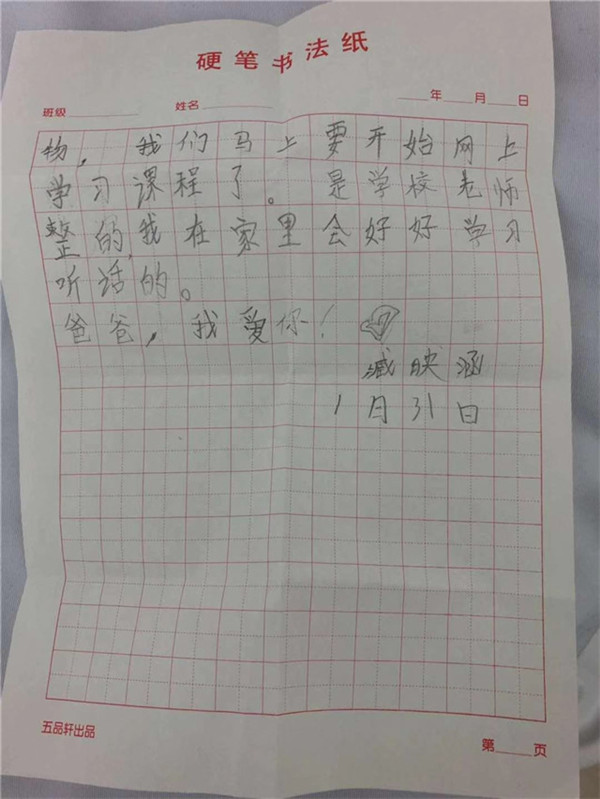 硬笔书法纸
班级 姓名 年 月 日
物，我们马上要开始网上
学习课程了。是学校老师
整的，我在家里会好好学习
听话的。
爸爸，我爱你！
臧映涵
1月31日
五品轩出品
第 页